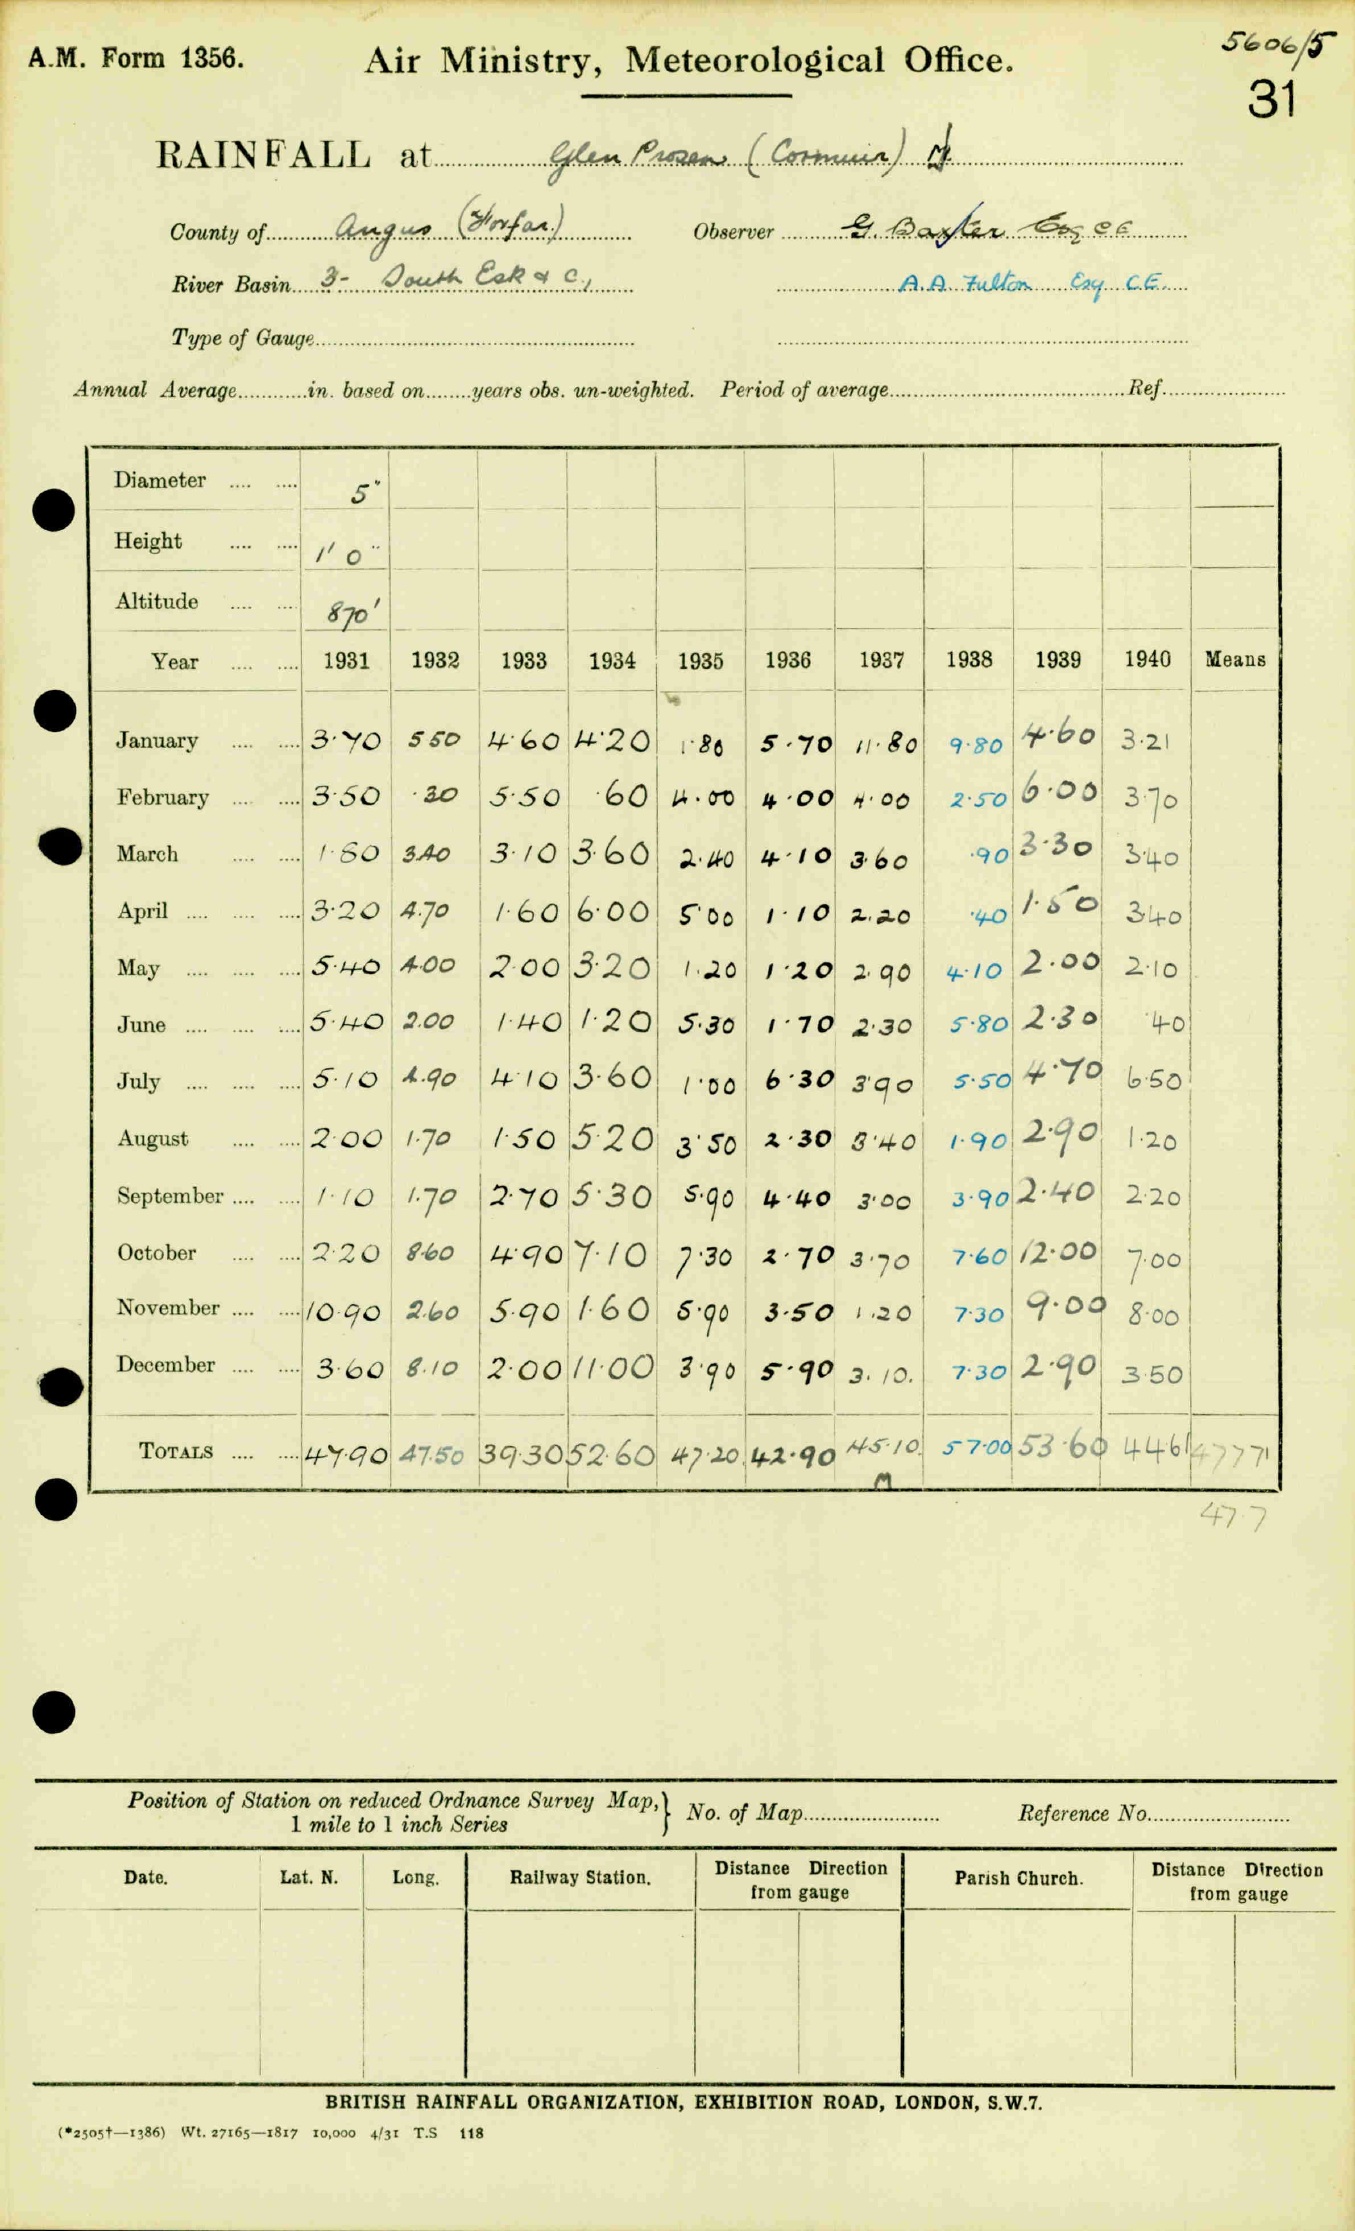 A.M. Form 1356.
Air Ministry, Meteorological Office.
5606/5
31
RAINFALL at Glen Prosen (Cormuir)
County of Angus (Forfar) Observer G. Baxter Esq CE
River Basin 3- South Esk & C., A.A Fulton Esq CE.
Type of Gauge
Annual Average in. based on years obs. un-weighted. Period of average Ref.
Diameter 5"
Height 1' 0"
Altitude 870'
Year 1931 1932 1933 1934 1935 1936 1937 1938 1939 1940 Means
January 3·70 5 50 4·60 4·20 1·80 5·70 11·80 9·80 4·60 3·21
February 3·50 ·30 5·50 ·60 4·00 4·00 4·00 2·50 6·00 3·70
March 1·80 3.40 3·10 3·60 2·40 4·10 3·60 ·90 3·30 3·40
April 3·20 4.70 1·60 6·00 5·00 1·10 2.20 ·40 1·50 3·40
May 5·40 4.00 2·00 3·20 1·20 1·20 2.90 4·10 2·00 2·10
June 5·40 2.00 1·40 1·20 5·30 1·70 2·30 5·80 2·30 ·40
July 5·10 4.90 4·10 3·60 1·00 6·30 3·90 5·50 4·70 6·50
August 2·00 1·70 1·50 5·20 3·50 2·30 3·40 1·90 2·90 1·20
September 1·10 1.70 2·70 5·30 5·90 4·40 3·00 3·90 2·40 2·20
October 2·20 8·60 4·90 7·10 7·30 2·70 3·70 7·60 12·00 7·00
November 10·90 2.60 5·90 1·60 5·90 3·50 1·20 7·30 9·00 8·00
December 3·60 8.10 2·00 11·00 3·90 5·90 3.10. 7·30 2·90 3·50
TOTALS 47·90 47.50 39·30 52·60 47·20 42·90 45·10 57·00 53·60 44 61 47771
M
47·7
Position of Station on reduced Ordnance Survey Map,} No. of Map Reference No.
1 mile to 1 inch Series
Date. Lat. N. Long. Railway Station. Distance Direction from gauge Parish Church. Distance Direction from gauge
BRITISH RAINFALL ORGANIZATION, EXHIBITION ROAD, LONDON, S.W.7.
(*2505†—1386) Wt. 27165—1817 10,000 4/31 T.S 118